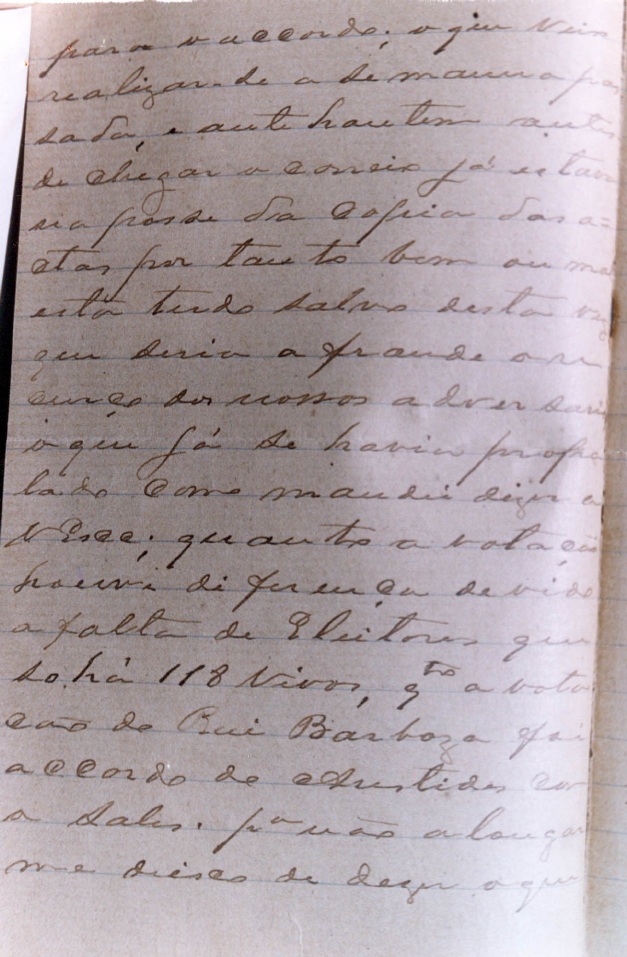 para o accordo; o que veio
realizar-se a se maura pas
sada, e ante hautem antes
de chegar o correio já estava
na posse da copia das a=
ctas por tanto bem ou mal
está tudo salvo desta vez
que seria a fraude o re
curço dos nossos adversari
o que já se havia propa
lado como mandei dizer a
VExcª; quanto a votação
houve diferença devido
a falta de Eleitores que
so há 118 vivos, qto a vota
cão do Rui Barboza foi
accordo de Aristides com
o Sales. pª não alongar
me deixo de dizer o que